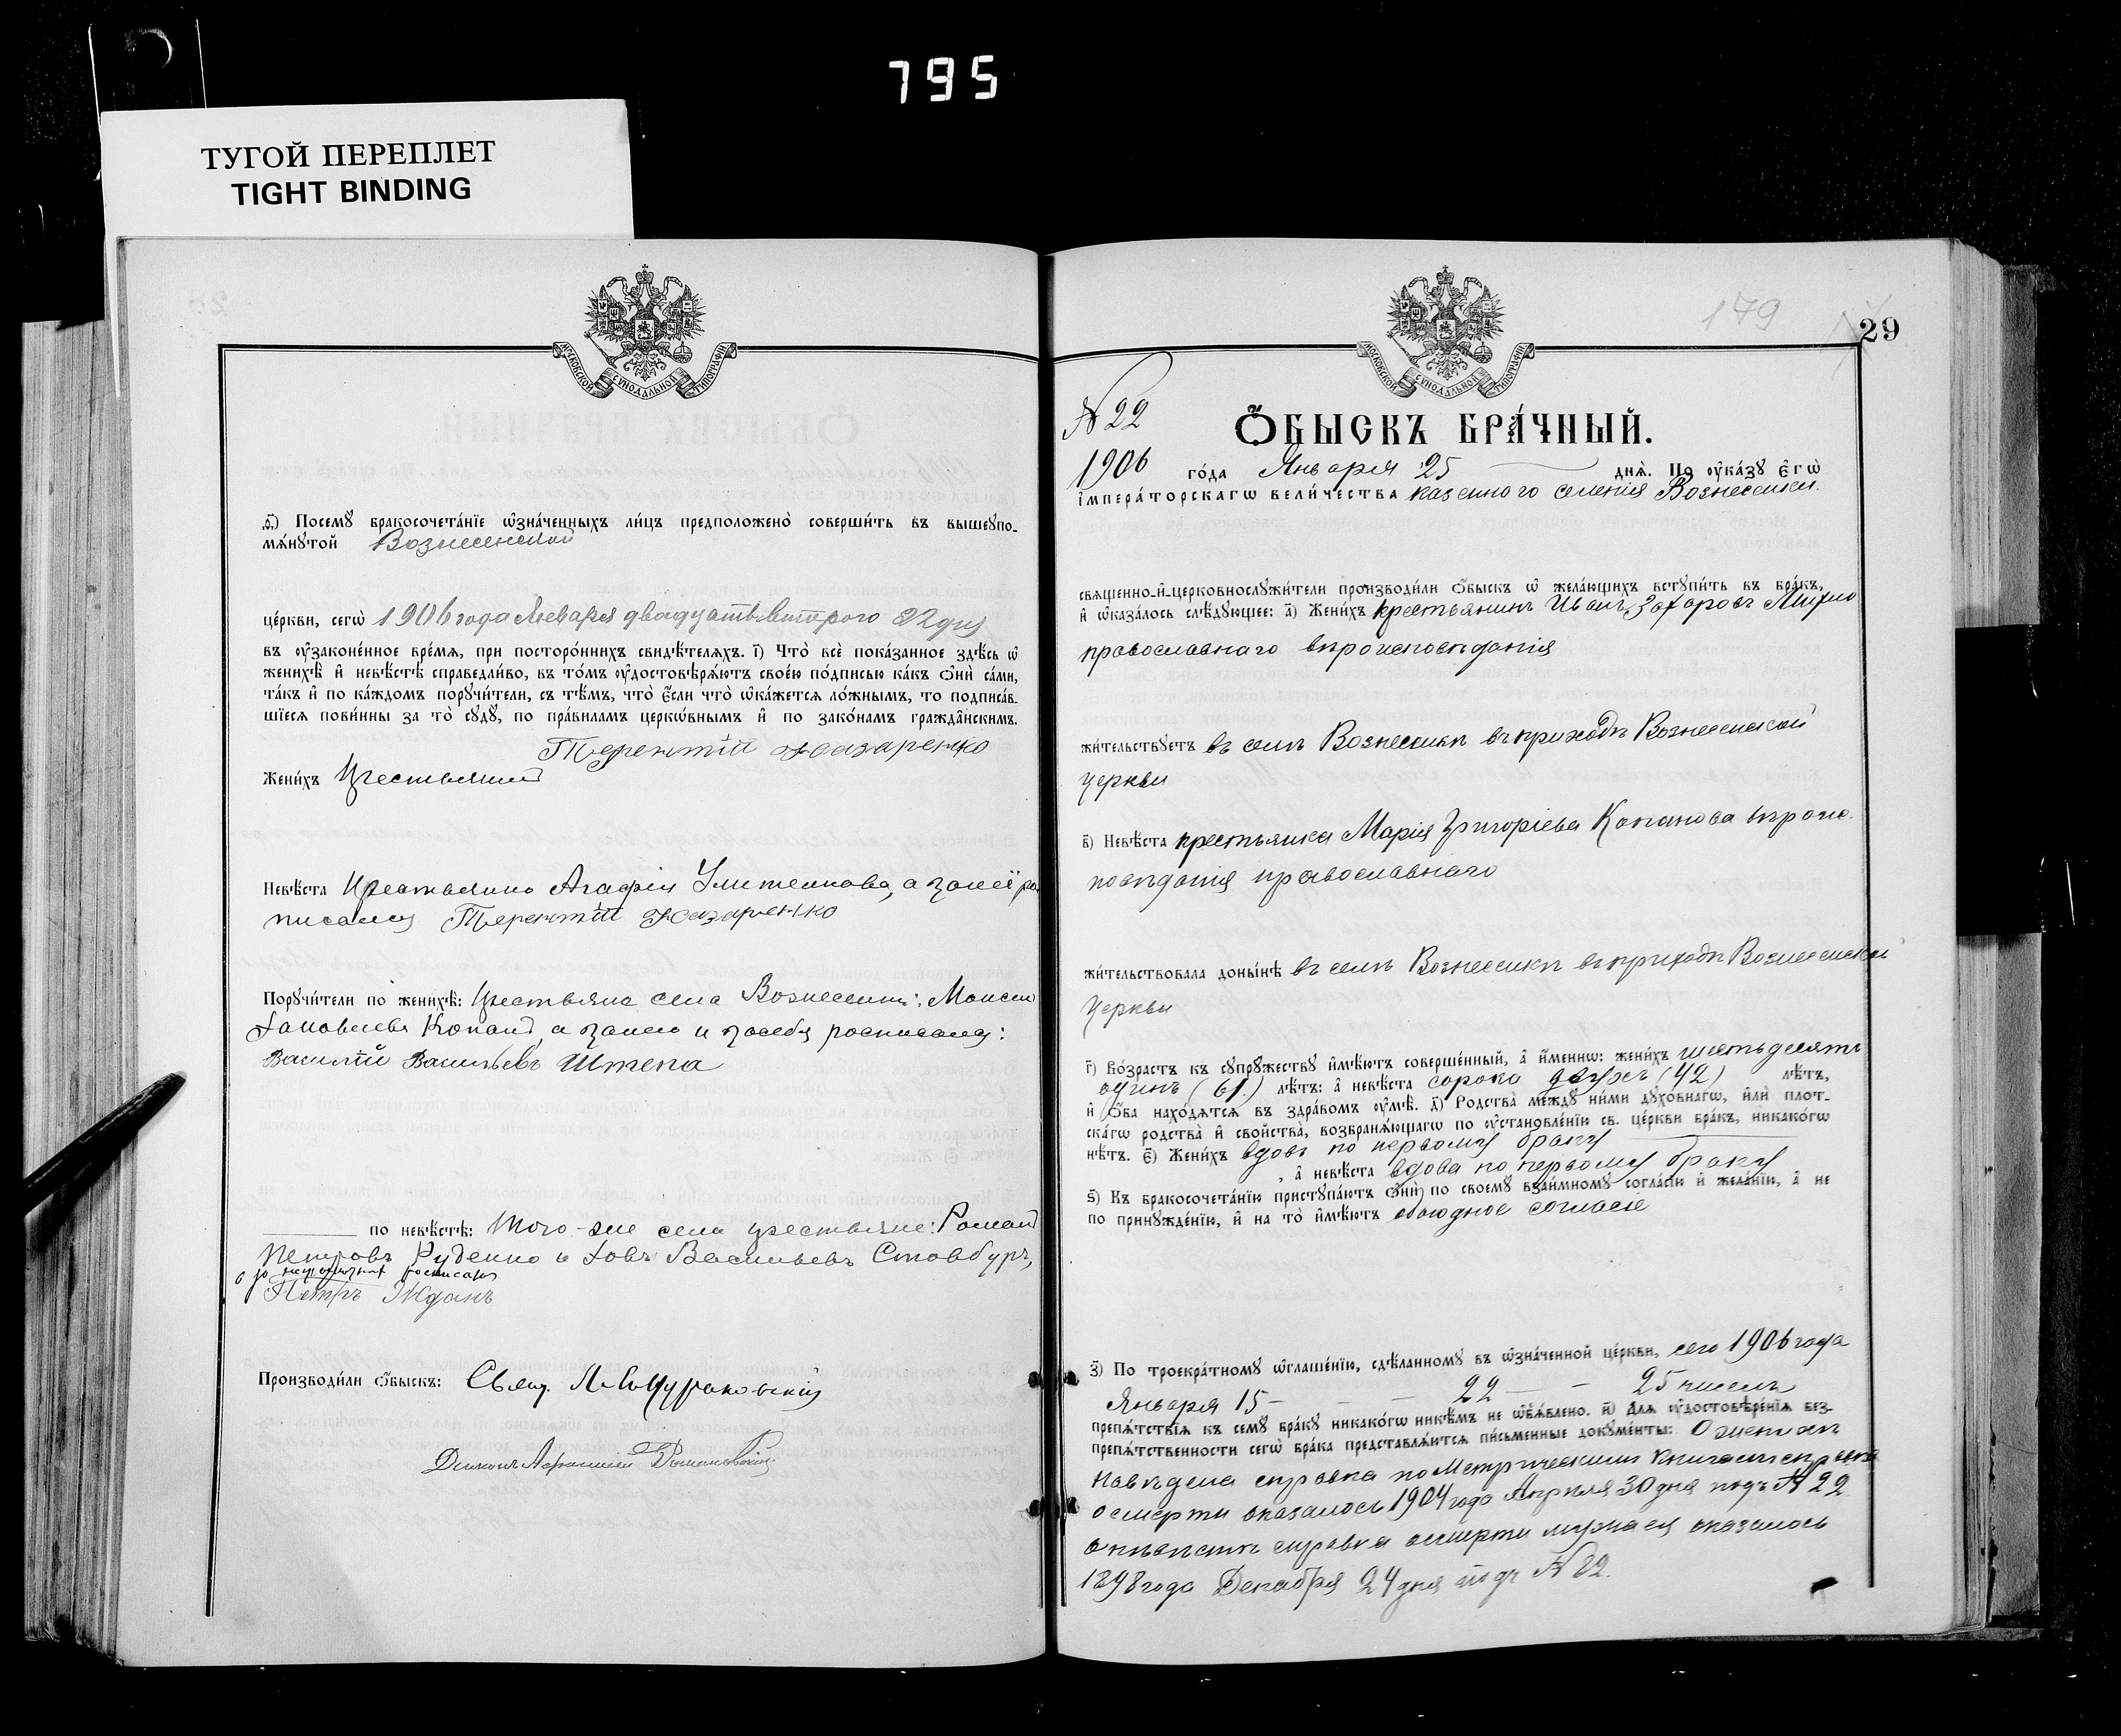 795
ТУГОЙ ПЕРЕПЛЕТ
TIGHT BINDING
МОСКОВСКОЙ СѴНОДАЛЬНОЙ ТИПОГРАФІИ
Посемꙋ бракосочета́нїе ѡ҆зна́ченныхъ ли́цъ предположено̀ соверши́ть въ вышеꙋпо-
мѧ́нꙋтой Вознесенской
це́ркви, сегѡ̀ 1906 года Января двадцать второго 22 дня
въ ᲂу҆зако́ненное вре́мѧ, при посторо́ннихъ свидѣ́телѧхъ. і҃) Что̀ всѐ пока́занное здѣ́сь ѡ҆
женихѣ̀ и҆ невѣ́стѣ справедли́во, въ то́мъ ᲂу҆достовѣрѧ́ютъ свое́ю по́дписью ка́къ ѻ҆нѝ са́ми,
та́къ и҆ по ка́ждомъ порꙋчи́тели, съ тѣ́мъ, что̀ є҆́сли что̀ ѡ҆ка́жетсѧ ло́жнымъ, то подписа́в-
шїесѧ пови́нны за то̀ сꙋдꙋ̀, по пра́виламъ церко́внымъ и҆ по зако́намъ гражда́нскимъ.
Терентій Назаренко
Жени́хъ
Невѣ́ста Агафія а за неё ро
писался Терентій Назаренко
Порꙋчи́тели по женихѣ̀: крестьяне села Вознесенки: Моисей
Копанъ, а за него и за себя росписался:
Василій Васильевъ Штепа
по невѣ́стѣ: того-же села крестьяне: Романъ
Петровъ Руденко и Іовъ Васильевъ Стовбуръ,
а за неграмотныхъ росписался
Петръ Жданъ
Производи́ли ѻ҆́быскъ: Свящ.
Діаконъ
МОСКОВСКОЙ СѴНОДАЛЬНОЙ ТИПОГРАФІИ
179
29
№ 22
Ѻ҆́БЫСКЪ БРА́ЧНЫЙ.
1906 го́да Января 25 днѧ̀. По ᲂу҆ка́зꙋ є҆гѡ̀
і҆мпера́торскагѡ вели́чества казенного селенія Вознесенки
свѧщенно-и҆-церковнослꙋжи́тели производи́ли ѻ҆́быскъ ѡ҆ жела́ющихъ встꙋпи́ть въ бра́къ,
и҆ ѡ҆каза́лось слѣ́дꙋющее: а҃) Жени́хъ крестьянинъ Иванъ Захаровъ
православнаго вѣроисповѣданія
жи́тельствꙋетъ въ селѣ Вознесенкѣ въ приходѣ Вознесенской
церкви
в҃) Невѣ́ста крестьянка Марія Григоріева Копанова вѣроис-
повѣданія православнаго
жи́тельствовала доны́нѣ въ селѣ Вознесенкѣ въ приходѣ Вознесенской
церкви
г҃) Во́зрастъ къ сꙋпрꙋ́жествꙋ и҆мѣ́ютъ соверше́нный, а҆ и҆́меннѡ: жени́хъ шестьдесятъ
одинъ (61) лѣ́тъ: а҆ невѣ́ста сорока двухъ (42) лѣ́тъ,
и҆ ѻ҆́ба нахо́дѧтсѧ въ здра́вомъ ᲂу҆мѣ̀. д҃) Родства̀ междꙋ̀ ни́ми дꙋхо́внагѡ, и҆лѝ плот-
ска́гѡ родства̀ и҆ сво́йства, возбранѧ́ющагѡ по ᲂу҆становле́нїю св. це́ркви бра́къ, никако́гѡ
нѣ́тъ. є҃) Жени́хъ вдовъ по первому браку
, а҆ невѣ́ста вдова по первому браку
ѕ҃) Къ бракосочета́нїю пристꙋпа́ютъ ѻ҆нѝ по своемꙋ̀ взаи́мномꙋ согла́сїю и҆ жела́нїю, а҆ не
по принꙋжде́нїю, и҆ на то̀ и҆мѣ́ютъ обоюдное согласіе
з҃) По троекра́тномꙋ ѡ҆глаше́нїю, сдѣ́ланномꙋ въ ѡ҆зна́ченной це́ркви, сего 1906 года
Января 15 - 22 - 25 чиселъ
препѧ́тствїѧ къ семꙋ̀ бра́кꙋ никако́гѡ никѣ́мъ не ѡ҆б̾ѧ́влено. и҃) Длѧ ᲂу҆достовѣре́нїѧ без-
препѧ́тственности сегѡ̀ бра́ка представлѧ́ютсѧ пи́сьменные докꙋме́нты: О женихѣ
наведена справка по Метрическимъ Книгамъ справка
о смерти оказалось 1904 года Апреля 30 дня подъ № 22
о невѣстѣ справка о смерти мужа ея оказалось
1898 года Декабря 24 дня подъ № 82.